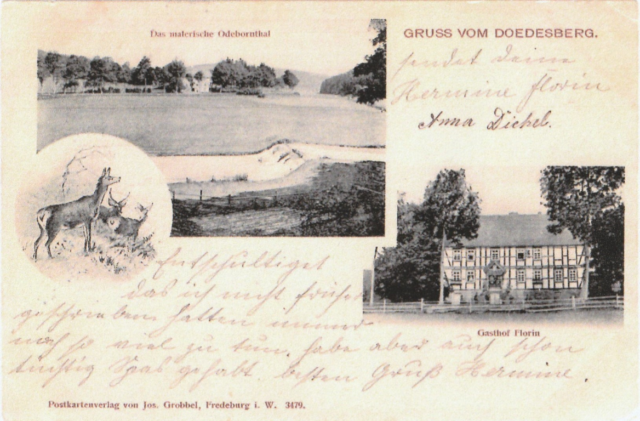 Das malerische Odebornthal
GRUSS VOM DOEDESBERG.
sendet deine
Hermine Florin
Anna Dickel.
Gasthof Florin
Entschultiget
das ich nicht früher
geschrieben hatten immer
noch so viel zu tun, habe aber auch schon
tüchtig Spas gehabt. besten Gruß Hermine.
Postkartenverlag von Jos. Grobbel, Fredeburg i. W. 3479.